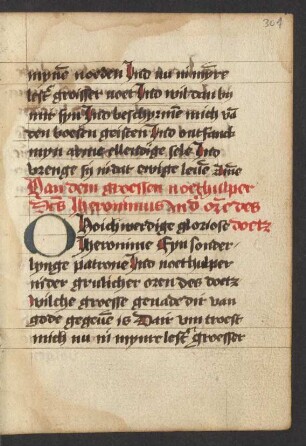 304
mynẽ noeden Ind nu in mynre
lest' groisser noet Ind wil dan by
mir syn Ind beschyrmẽ mich vã
den boesen geisten Ind ontfanck
myn arme ellendige sele Ind
brenge sy in dat ewige leuẽ Amẽ
Van dem groessen noethulper
Des Iheronimus in d' orẽ des
O Hoichwerdige gloriose doetz
Iheronime Eyn sonder
lynge patrone Ind noethulper
in der gruslicher oren des doetz
wilche groesse genade dir van
gode gegeuẽ is Dair vm troest
mich nu in mynre lest' groesser